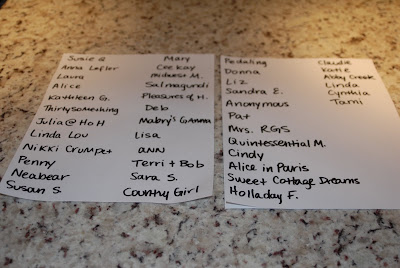 Susie Q
Anna Lefler
Laura
Alice
Kathleen G.
Thirtysomething
Julia @ HoH
Linda Lou
Nikki Crumpet
Penny
Neabear
Susan S.
Mary
Cee Kay
Midwest M.
Salmagundi
Pleasures of H.
Deb
Mabry's Gamma
Lisa
ANN
Terri + Bob
Sara S.
Country Girl
Pedaling
Donna
Liz
Sandra E.
Anonymous
Pat
Mrs. RGS
Quintessential M.
Cindy
Alice in Paris
Sweet Cottage Dreams
Holladay F.
Claudie
Katie
Abby Creek
Linda
Cynthia
Tami